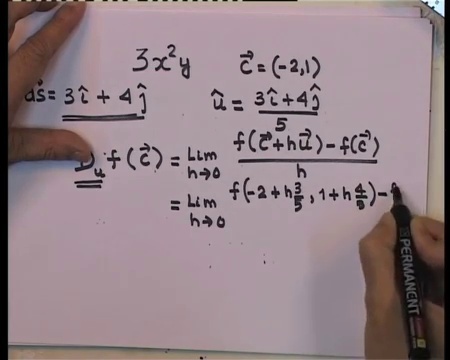 3x²y c⃗ = (-2,1)
ds = 3î + 4ĵ û = 3î+4ĵ / 5
D_u f(c⃗) = Lim h→0 f(c⃗+hu⃗) - f(c⃗) / h
= Lim h→0 f(-2 + h 3/5, 1 + h 4/5) -
PERMANENT